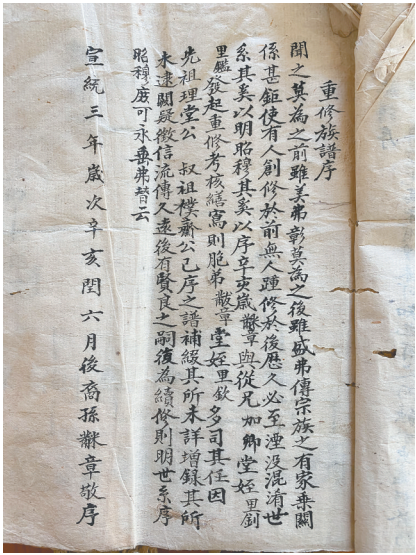 重修族譜序
聞之莫為之前雖美弗彰莫為之後雖盛弗傳宗族之有家乗關
係甚鉅使有人創修於前無人踵修於後歴久必至湮没混淆世
系其奚以明昭穆其奚以序辛亥歲黻章與從兄加卿堂姪里釗
里鑑發起重修考核繕寫則胞弟黻章堂姪里欽多司其任因
先祖理堂公 叔祖樸齋公已序之譜補綴其所未詳增録其所
未逮闕疑徵信流傳久遠後有賢良之嗣復為續修則明世系序
昭穆庶可永垂弗替云
宣統三年歲次辛亥閏六月後裔孫黻章敬序